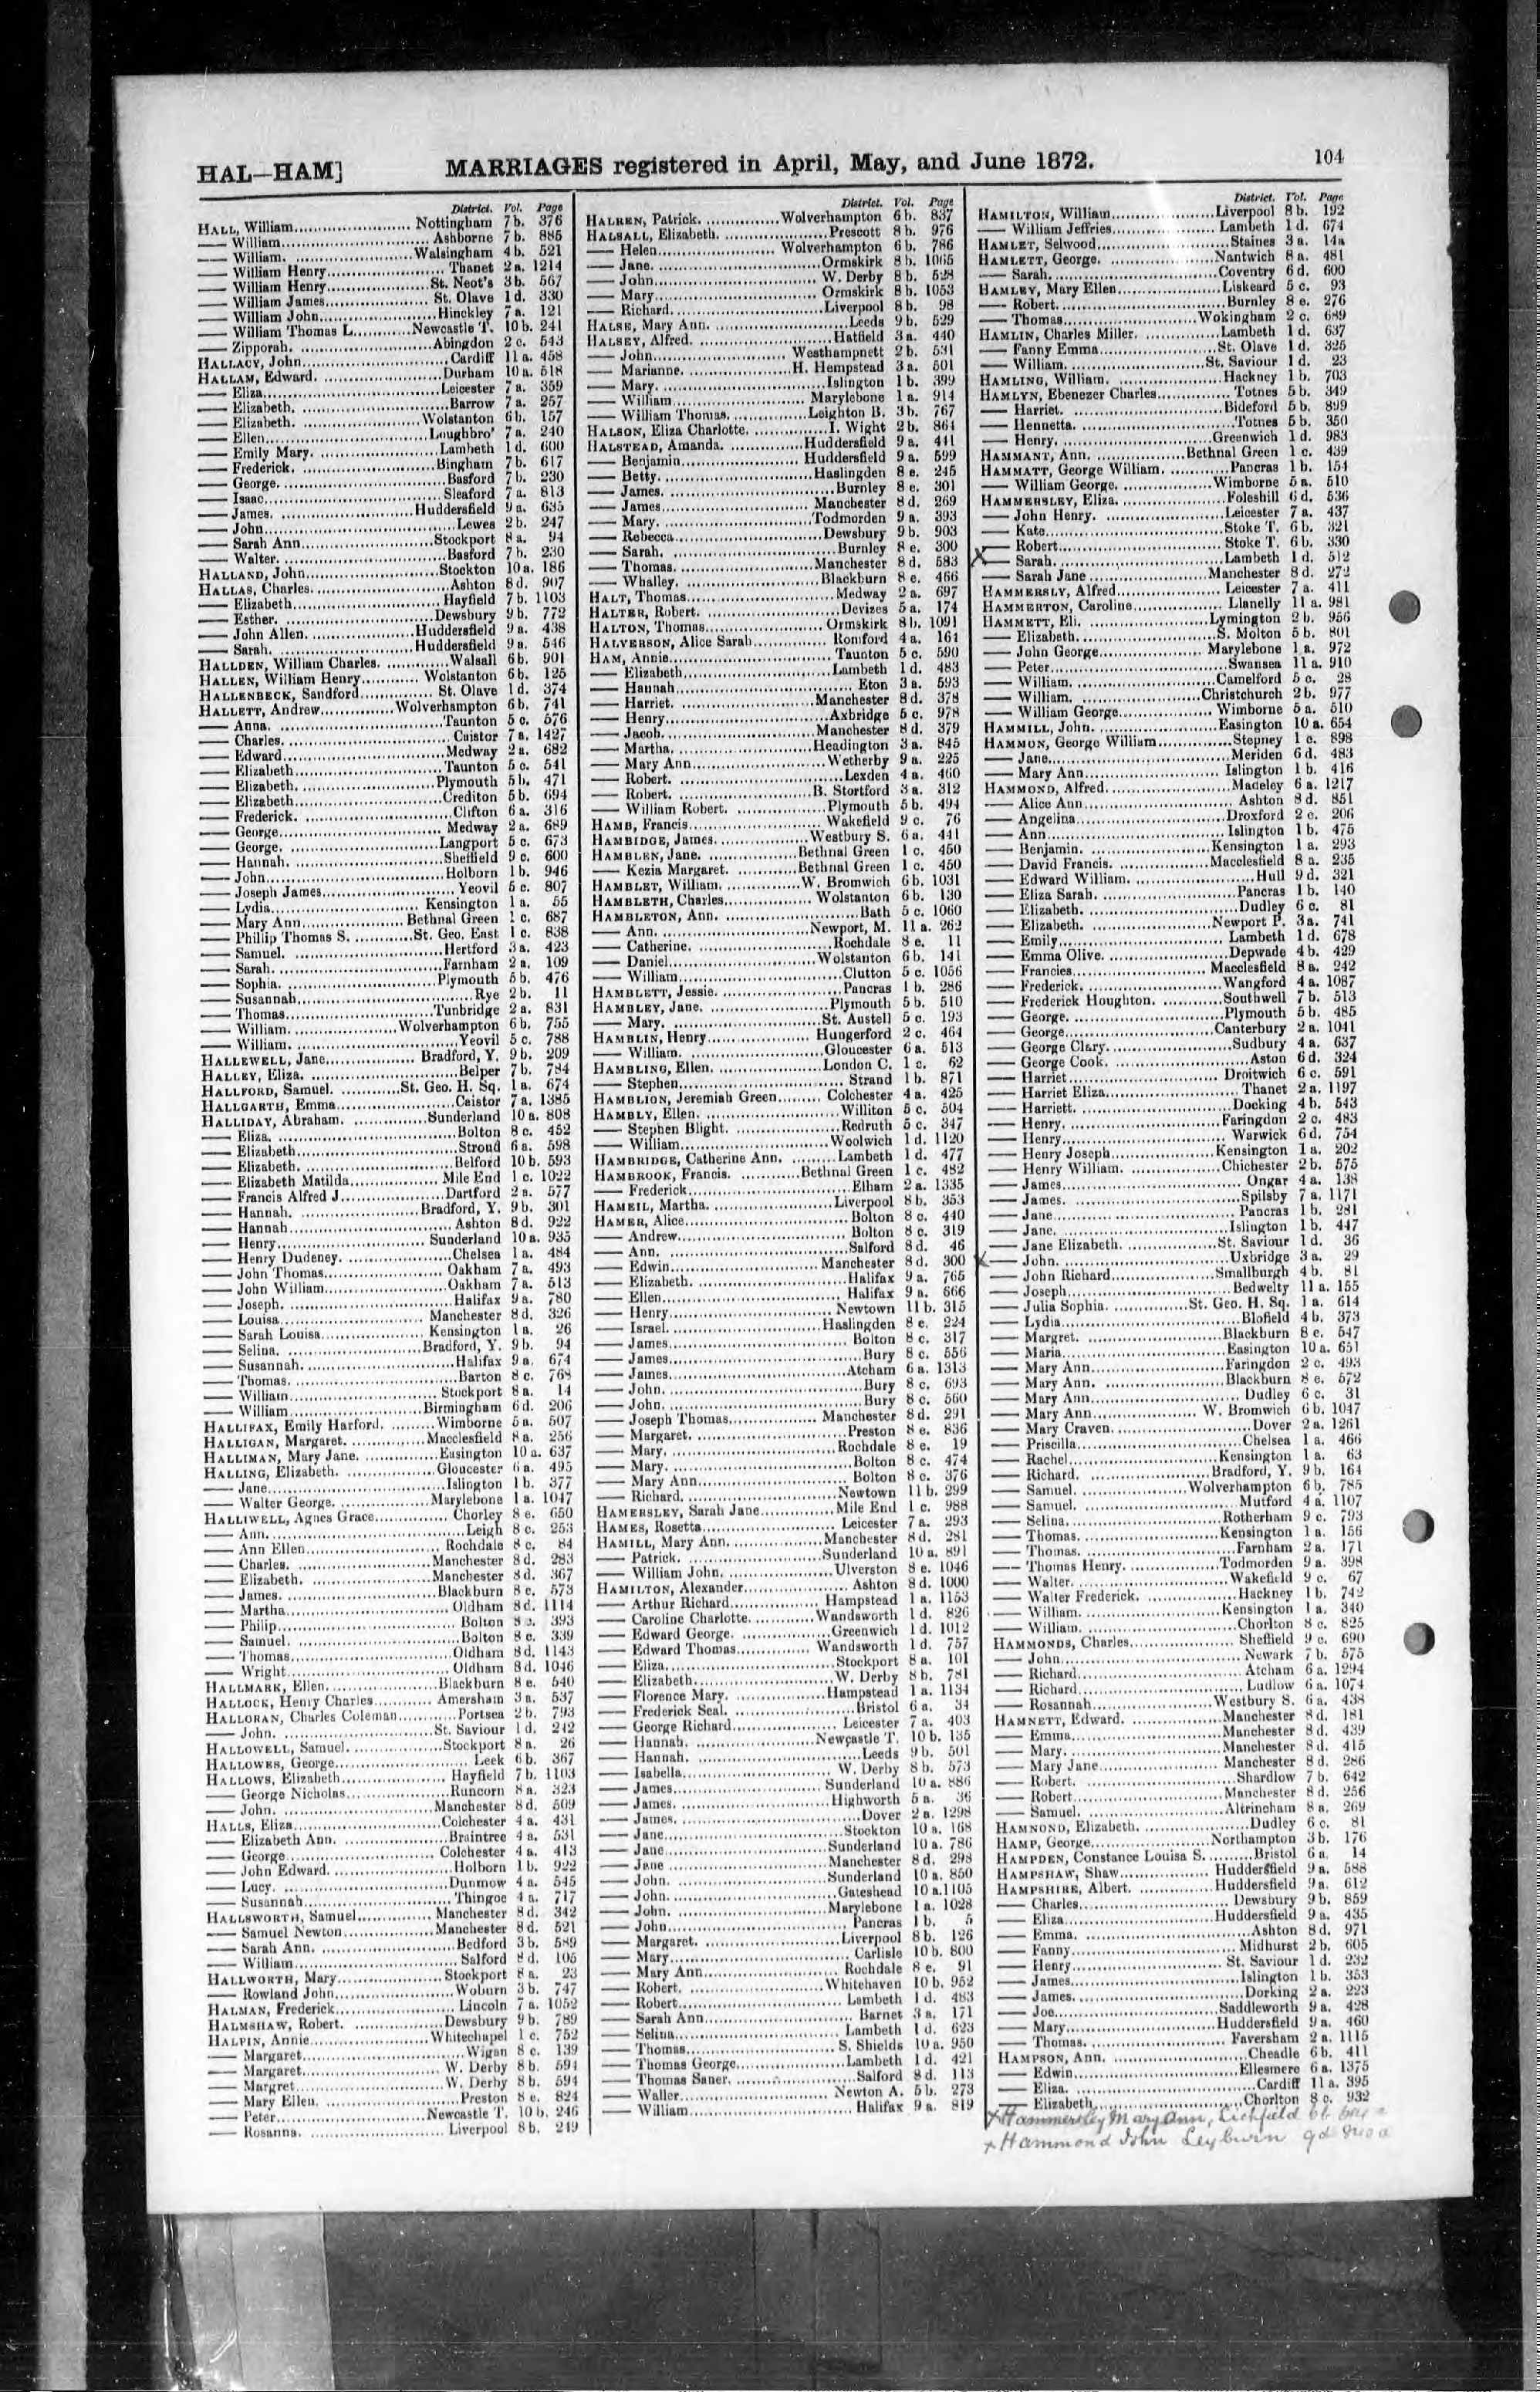 HAL—HAM] MARRIAGES registered in April, May, and June 1872. 104
District. Vol. Page
HALL, William Nottingham 7 b. 376
— William Ashborne 7 b. 885
— William. Walsingham 4 b. 521
— William Henry Thanet 2 a. 1214
— William Henry St. Neot's 3 b. 567
— William James St. Olave 1 d. 330
— William John Hinckley 7 a. 121
— William Thomas L. Newcastle T. 10 b. 241
— Zipporah. Abingdon 2 c. 543
HALLACY, John Cardiff 11 a. 458
HALLAM, Edward. Durham 10 a. 518
— Eliza Leicester 7 a. 359
— Elizabeth. Barrow 7 a. 257
— Elizabeth. Wolstanton 6 b. 157
— Ellen Loughbro' 7 a. 240
— Emily Mary. Lambeth 1 d. 600
— Frederick. Bingham 7 b. 617
— George. Basford 7 b. 230
— Isaac Sleaford 7 a. 813
— James. Huddersfield 9 a. 635
— John Lewes 2 b. 247
— Sarah Ann Stockport 8 a. 94
— Walter. Basford 7 b. 230
HALLAND, John Stockton 10 a. 186
HALLAS, Charles. Ashton 8 d. 907
— Elizabeth Hayfield 7 b. 1103
— Esther. Dewsbury 9 b. 772
— John Allen. Huddersfield 9 a. 438
— Sarah. Huddersfield 9 a. 546
HALLDEN, William Charles. Walsall 6 b. 901
HALLEN, William Henry Wolstanton 6 b. 125
HALLENBECK, Sandford St. Olave 1 d. 374
HALLETT, Andrew Wolverhampton 6 b. 741
— Anna. Taunton 5 c. 576
— Charles. Caistor 7 a. 1427
— Edward Medway 2 a. 682
— Elizabeth Taunton 5 c. 541
— Elizabeth. Plymouth 5 b. 471
— Elizabeth Crediton 5 b. 694
— Frederick. Clifton 6 a. 316
— George Medway 2 a. 689
— George. Langport 5 c. 673
— Hannah. Sheffield 9 c. 600
— John Holborn 1 b. 946
— Joseph James Yeovil 5 c. 807
— Lydia Kensington 1 a. 55
— Mary Ann Bethnal Green 1 c. 687
— Phillip Thomas S. St. Geo. East 1 c. 838
— Samuel. Hertford 3 a. 423
— Sarah. Farnham 2 a. 109
— Sophia. Plymouth 5 b. 476
— Susannah Rye 2 b. 11
— Thomas Tunbridge 2 a. 831
— William. Wolverhampton 6 b. 755
— William. Yeovil 5 c. 788
HALLEWELL, Jane Bradford, Y. 9 b. 209
HALLEY, Eliza. Belper 7 b. 784
HALLFORD, Samuel. St. Geo. H. Sq. 1 a. 674
HALLGARTH, Emma Caistor 7 a. 1385
HALLIDAY, Abraham. Sunderland 10 a. 808
— Eliza. Bolton 8 c. 452
— Elizabeth Stroud 6 a. 598
— Elizabeth. Belford 10 b. 593
— Elizabeth Matilda Mile End 1 c. 1022
— Francis Alfred J Dartford 2 a. 577
— Hannah. Bradford, Y. 9 b. 301
— Hannah Ashton 8 d. 922
— Henry Sunderland 10 a. 935
— Henry Dudeney. Chelsea 1 a. 484
— John Thomas Oakham 7 a. 493
— John William Oakham 7 a. 513
— Joseph. Halifax 9 a. 780
— Louisa Manchester 8 d. 326
— Sarah Louisa Kensington 1 a. 26
— Selina. Bradford, Y. 9 b. 94
— Susannah. Halifax 9 a. 674
— Thomas. Barton 8 c. 768
— William Stockport 8 a. 14
— William Birmingham 6 d. 206
HALLIFAX, Emily Harford. Wimborne 5 a. 507
HALLIGAN, Margaret. Macclesfield 8 a. 256
HALLIMAN, Mary Jane. Easington 10 a. 637
HALLING, Elizabeth. Gloucester 6 a. 495
— Jane Islington 1 b. 377
— Walter George. Marylebone 1 a. 1047
HALLIWELL, Agnes Grace Chorley 8 e. 650
— Ann. Leigh 8 c. 253
— Ann Ellen Rochdale 8 e. 84
— Charles. Manchester 8 d. 283
— Elizabeth. Manchester 8 d. 367
— James. Blackburn 8 e. 573
— Martha Oldham 8 d. 1114
— Philip Bolton 8 c. 393
— Samuel. Bolton 8 c. 339
— Thomas Oldham 8 d. 1143
— Wright Oldham 8 d. 1046
HALLMARK, Ellen Blackburn 8 e. 540
HALLOCK, Henry Charles Amersham 3 a. 537
HALLORAN, Charles Coleman Portsea 2 b. 793
— John. St. Saviour 1 d. 242
HALLOWELL, Samuel. Stockport 8 a. 26
HALLOWES, George Leek 6 b. 367
HALLOWS, Elizabeth Hayfield 7 b. 1103
— George Nicholas Runcorn 8 a. 323
— John. Manchester 8 d. 509
HALLS, Eliza Colchester 4 a. 431
— Elizabeth Ann. Braintree 4 a. 531
— George Colchester 4 a. 413
— John Edward. Holborn 1 b. 922
— Lucy. Dunmow 4 a. 545
— Susannah Thingoe 4 a. 717
HALLSWORTH, Samuel Manchester 8 d. 342
— Samuel Newton Manchester 8 d. 521
— Sarah Ann. Bedford 3 b. 589
— William Salford 8 d. 105
HALLWORTH, Mary Stockport 8 a. 23
— Rowland John Woburn 3 b. 747
HALMAN, Frederick Lincoln 7 a. 1052
HALMSHAW, Robert. Dewsbury 9 b. 789
HALPIN, Annie Whitechapel 1 c. 752
— Margaret Wigan 8 c. 139
— Margaret W. Derby 8 b. 594
— Margret W. Derby 8 b. 594
— Mary Ellen. Preston 8 e. 824
— Peter Newcastle T. 10 b. 246
— Rosanna. Liverpool 8 b. 219
District. Vol. Page
HALREN, Patrick. Wolverhampton 6 b. 837
HALSALL, Elizabeth. Prescott 8 b. 976
— Helen Wolverhampton 6 b. 786
— Jane. Ormskirk 8 b. 1065
— John W. Derby 8 b. 528
— Mary Ormskirk 8 b. 1053
— Richard. Liverpool 8 b. 98
HALSE, Mary Ann. Leeds 9 b. 529
HALSEY, Alfred. Hatfield 3 a. 440
— John Westhampnett 2 b. 531
— Marianne. H. Hempstead 3 a. 501
— Mary. Islington 1 b. 399
— William Marylebone 1 a. 914
— William Thomas. Leighton B. 3 b. 767
HALSON, Eliza Charlotte. I. Wight 2 b. 861
HALSTEAD, Amanda. Huddersfield 9 a. 411
— Benjamin Huddersfield 9 a. 599
— Betty. Haslingden 8 e. 245
— James. Burnley 8 e. 301
— James Manchester 8 d. 269
— Mary. Todmorden 9 a. 393
— Rebecca Dewsbury 9 b. 903
— Sarah. Burnley 8 e. 300
— Thomas. Manchester 8 d. 583
— Whalley. Blackburn 8 e. 466
HALT, Thomas Medway 2 a. 697
HALTER, Robert. Devizes 5 a. 174
HALTON, Thomas Ormskirk 8 b. 1091
HALVERSON, Alice Sarah Romford 4 a. 161
HAM, Annie Taunton 5 c. 590
— Elizabeth Lambeth 1 d. 483
— Hannah Eton 3 a. 593
— Harriet. Manchester 8 d. 378
— Henry Axbridge 5 c. 978
— Jacob. Manchester 8 d. 379
— Martha. Headington 3 a. 845
— Mary Ann Wetherby 9 a. 225
— Robert. Lexden 4 a. 460
— Robert. B. Stortford 3 a. 312
— William Robert. Plymouth 5 b. 494
HAMB, Francis Wakefield 9 c. 76
HAMBIDGE, James. Westbury S. 6 a. 441
HAMBLEN, Jane. Bethnal Green 1 c. 450
— Kezia Margaret. Bethnal Green 1 c. 450
HAMBLET, William. W. Bromwich 6 b. 1031
HAMBLETH, Charles Wolstanton 6 b. 130
HAMBLETON, Ann. Bath 5 c. 1060
— Ann. Newport, M. 11 a. 262
— Catherine. Rochdale 8 e. 11
— Daniel Wolstanton 6 b. 141
— William Clutton 5 c. 1056
HAMBLETT, Jessie. Pancras 1 b. 286
HAMBLEY, Jane. Plymouth 5 b. 510
— Mary. St. Austell 5 c. 193
HAMBLIN, Henry Hungerford 2 c. 464
— William. Gloucester 6 a. 513
HAMBLING, Ellen. London C. 1 c. 62
— Stephen Strand 1 b. 871
HAMBLION, Jeremiah Green Colchester 4 a. 425
HAMBLY, Ellen. Williton 5 c. 504
— Stephen Blight. Redruth 5 c. 347
— William Woolwich 1 d. 1120
HAMBRIDGE, Catherine Ann. Lambeth 1 d. 477
HAMBROOK, Francis. Bethnal Green 1 c. 482
— Frederick Elham 2 a. 1335
HAMEIL, Martha. Liverpool 8 b. 353
HAMER, Alice Bolton 8 c. 440
— Andrew Bolton 8 c. 319
— Ann. Salford 8 d. 46
— Edwin Manchester 8 d. 300
— Elizabeth. Halifax 9 a. 765
— Ellen Halifax 9 a. 666
— Henry Newtown 11 b. 315
— Israel. Haslingden 8 e. 224
— James Bolton 8 c. 317
— James Bury 8 c. 556
— James Atcham 6 a. 1313
— John. Bury 8 c. 693
— John. Bury 8 c. 560
— Joseph Thomas Manchester 8 d. 291
— Margaret. Preston 8 e. 836
— Mary. Rochdale 8 e. 19
— Mary. Bolton 8 c. 474
— Mary Ann Bolton 8 c. 376
— Richard. Newtown 11 b. 299
HAMERSLEY, Sarah Jane Mile End 1 c. 988
HAMES, Rosetta Leicester 7 a. 293
HAMILL, Mary Ann. Manchester 8 d. 281
— Patrick. Sunderland 10 a. 891
— William John. Ulverston 8 e. 1046
HAMILTON, Alexander Ashton 8 d. 1000
— Arthur Richard Hampstead 1 a. 1153
— Caroline Charlotte. Wandsworth 1 d. 826
— Edward George. Greenwich 1 d. 1012
— Edward Thomas Wandsworth 1 d. 757
— Eliza Stockport 8 a. 101
— Elizabeth W. Derby 8 b. 781
— Florence Mary. Hampstead 1 a. 1134
— Frederick Seal. Bristol 6 a. 34
— George Richard Leicester 7 a. 403
— Hannah. Newcastle T. 10 b. 135
— Hannah. Leeds 9 b. 501
— Isabella W. Derby 8 b. 573
— James Sunderland 10 a. 886
— James. Highworth 5 a. 36
— James. Dover 2 a. 1298
— Jane Stockton 10 a. 168
— Jane Sunderland 10 a. 786
— Jane Manchester 8 d. 293
— John. Sunderland 10 a. 850
— John. Gateshead 10 a. 1105
— John. Marylebone 1 a. 1028
— John Pancras 1 b. 5
— Margaret. Liverpool 8 b. 126
— Mary Carlisle 10 b. 800
— Mary Ann Rochdale 8 e. 91
— Robert. Whitehaven 10 b. 952
— Robert Lambeth 1 d. 483
— Sarah Ann Barnet 3 a. 171
— Selina Lambeth 1 d. 623
— Thomas S. Shields 10 a. 950
— Thomas George Lambeth 1 d. 421
— Thomas Saner. Salford 8 d. 113
— Waller Newton A. 5 b. 273
— William Halifax 9 a. 819
District. Vol. Page
HAMILTON, William Liverpool 8 b. 192
— William Jeffries Lambeth 1 d. 674
HAMLET, Selwood Staines 3 a. 14a
HAMLETT, George. Nantwich 8 a. 481
— Sarah. Coventry 6 d. 600
HAMLEY, Mary Ellen Liskeard 5 c. 93
— Robert. Burnley 8 e. 276
— Thomas Wokingham 2 c. 689
HAMLIN, Charles Miller. Lambeth 1 d. 637
— Fanny Emma St. Olave 1 d. 325
— William. St. Saviour 1 d. 23
HAMLING, William. Hackney 1 b. 703
HAMLYN, Ebenezer Charles Totnes 5 b. 349
— Harriet. Bideford 5 b. 899
— Hennetta. Totnes 5 b. 350
— Henry. Greenwich 1 d. 983
HAMMANT, Ann. Bethnal Green 1 c. 439
HAMMATT, George William. Pancras 1 b. 154
— William George. Wimborne 5 a. 510
HAMMERSLEY, Eliza. Foleshill 6 d. 536
— John Henry. Leicester 7 a. 437
— Kate Stoke T. 6 b. 321
— Robert Stoke T. 6 b. 330
X — Sarah. Lambeth 1 d. 512
— Sarah Jane Manchester 8 d. 272
HAMMERSLY, Alfred Leicester 7 a. 411
HAMMERTON, Caroline Llanelly 11 a. 981
HAMMETT, Eli. Lymington 2 b. 956
— Elizabeth. S. Molton 5 b. 801
— John George Marylebone 1 a. 972
— Peter Swansea 11 a. 910
— William. Camelford 5 c. 28
— William. Christchurch 2 b. 977
— William George Wimborne 5 a. 510
HAMMILL, John. Easington 10 a. 654
HAMMON, George William Stepney 1 c. 898
— Jane Meriden 6 d. 483
— Mary Ann Islington 1 b. 416
HAMMOND, Alfred. Madeley 6 a. 1217
— Alice Ann Ashton 8 d. 851
— Angelina Droxford 2 c. 206
— Ann Islington 1 b. 475
— Benjamin. Kensington 1 a. 293
— David Francis. Macclesfield 8 a. 235
— Edward William. Hull 9 d. 321
— Eliza Sarah. Pancras 1 b. 140
— Elizabeth. Dudley 6 c. 81
— Elizabeth. Newport P. 3 a. 741
— Emily Lambeth 1 d. 678
— Emma Olive. Depwade 4 b. 429
— Francies Macclesfield 8 a. 242
— Frederick. Wangford 4 a. 1087
— Frederick Houghton. Southwell 7 b. 513
— George. Plymouth 5 b. 485
— George Canterbury 2 a. 1041
— George Clary. Sudbury 4 a. 637
— George Cook. Aston 6 d. 324
— Harriet Droitwich 6 c. 591
— Harriet Eliza. Thanet 2 a. 1197
— Harriett. Docking 4 b. 543
— Henry. Faringdon 2 c. 483
— Henry Warwick 6 d. 754
— Henry Joseph. Kensington 1 a. 202
— Henry William. Chichester 2 b. 575
— James Ongar 4 a. 138
— James. Spilsby 7 a. 1171
— Jane Pancras 1 b. 281
— Jane. Islington 1 b. 447
— Jane Elizabeth. St. Saviour 1 d. 36
X — John. Uxbridge 3 a. 29
— John Richard Smallburgh 4 b. 81
— Joseph Bedwelty 11 a. 155
— Julia Sophia. St. Geo. H. Sq. 1 a. 614
— Lydia Blofield 4 b. 373
— Margret. Blackburn 8 e. 547
— Maria Easington 10 a. 651
— Mary Ann Faringdon 2 c. 493
— Mary Ann. Blackburn 8 e. 572
— Mary Ann Dudley 6 c. 31
— Mary Ann W. Bromwich 6 b. 1047
— Mary Craven. Dover 2 a. 1261
— Priscilla Chelsea 1 a. 466
— Rachel Kensington 1 a. 63
— Richard. Bradford, Y. 9 b. 164
— Samuel. Wolverhampton 6 b. 785
— Samuel. Mutford 4 a. 1107
— Selina Rotherham 9 c. 793
— Thomas. Kensington 1 a. 156
— Thomas. Farnham 2 a. 171
— Thomas Henry. Todmorden 9 a. 398
— Walter. Wakefield 9 c. 67
— Walter Frederick. Hackney 1 b. 742
— William. Kensington 1 a. 340
— William. Chorlton 8 c. 825
HAMMONDS, Charles Sheffield 9 c. 690
— John Newark 7 b. 575
— Richard Atcham 6 a. 1294
— Richard. Ludlow 6 a. 1074
— Rosannah Westbury S. 6 a. 438
HAMNETT, Edward. Manchester 8 d. 181
— Emma. Manchester 8 d. 439
— Mary. Manchester 8 d. 415
— Mary Jane Manchester 8 d. 286
— Robert. Shardlow 7 b. 642
— Robert Manchester 8 d. 256
— Samuel. Altrincham 8 a. 269
HAMNOND, Elizabeth. Dudley 6 c. 81
HAMP, George Northampton 3 b. 176
HAMPDEN, Constance Louisa S. Bristol 6 a. 14
HAMPSHAW, Shaw Huddersfield 9 a. 588
HAMPSHIRE, Albert. Huddersfield 9 a. 612
— Charles Dewsbury 9 b. 859
— Eliza Huddersfield 9 a. 435
— Emma. Ashton 8 d. 971
— Fanny Midhurst 2 b. 605
— Henry St. Saviour 1 d. 232
— James Islington 1 b. 353
— James. Dorking 2 a. 223
— Joe Saddleworth 9 a. 428
— Mary Huddersfield 9 a. 460
— Thomas. Faversham 2 a. 1115
HAMPSON, Ann. Cheadle 6 b. 411
— Edwin Ellesmere 6 a. 1375
— Eliza. Cardiff 11 a. 395
— Elizabeth Chorlton 8 c. 932
x Hammersley Mary Ann, Lichfield 6b
x Hammond John Leyburn 9d